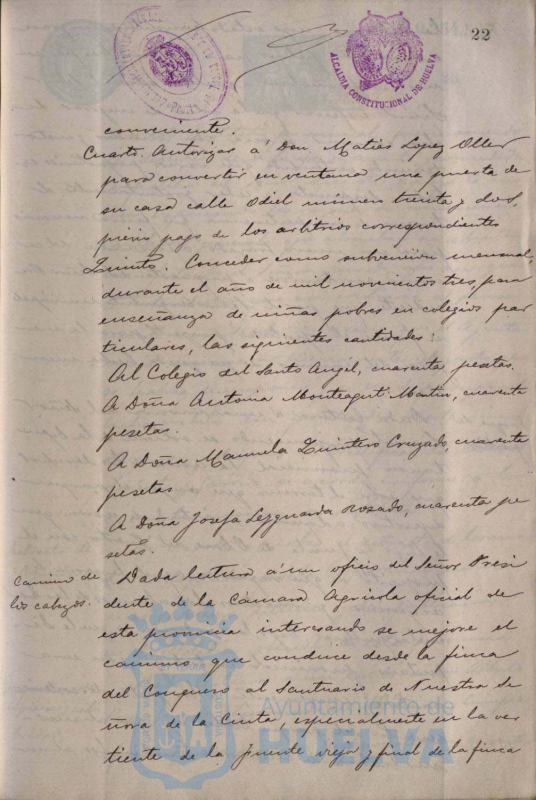 22
ALCALDIA CONSTITUCIONAL DE HUELVA
conveniente.
Cuarto. Autorizar á Don Matias Lopez Oller
para convertir en ventana una puerta de
su casa calle Odiel número treinta y dos,
previo pago de los arbitrios correspondientes
Quinto. Conceder como subvención mensual,
durante el año de mil novecientos tres, para
enseñanza de niñas pobres en colegios par
ticulares, las siguientes cantidades:
Al Colegio del Santo Angel, cuarenta pesetas.
A Doña Antonia Monteagut Martin, cuarenta
pesetas.
A Doña Manuela Quintero Cruzado, cuarenta
pesetas
A Doña Josefa Rosado, cuarenta pe
setas.
Camino de
los cabezos.
Dada lectura á un oficio del Señor Presi
dente de la Cámara Agricola oficial de
esta provincia interesando se mejore el
camino que conduce desde la finca
del Conquero al Santuario de Nuestra Se
ñora de la Cinta, especialmente en la ver
tiente de la fuente vieja y final de la finca
Ayuntamiento de
HUELVA